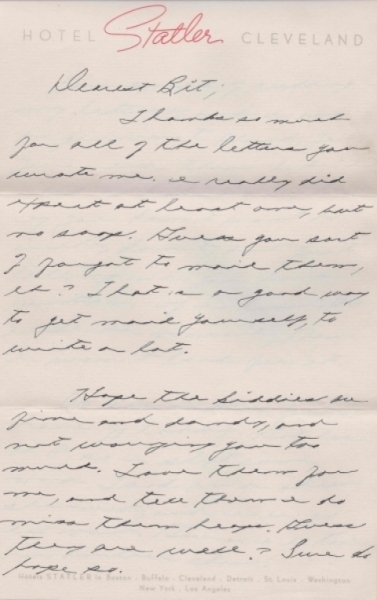 HOTEL Statler CLEVELAND
Dearest Bit,
Thanks so much
for all of the letters you
wrote me. I really did
expect at least one, but
no soap. Guess you sort
of forgot to mail them,
eh? That is a good way
to get maid yourself, to
write a lot.
Hope the kiddies are
fine and dandy, and
not worrying you too
much. Love them for
me, and tell them I do
miss them heaps. Guess
they are well? Sure do
hope so.
Hotels STATLER in Boston · Buffalo · Cleveland · Detroit · St. Louis · Washington
New York · Los Angeles